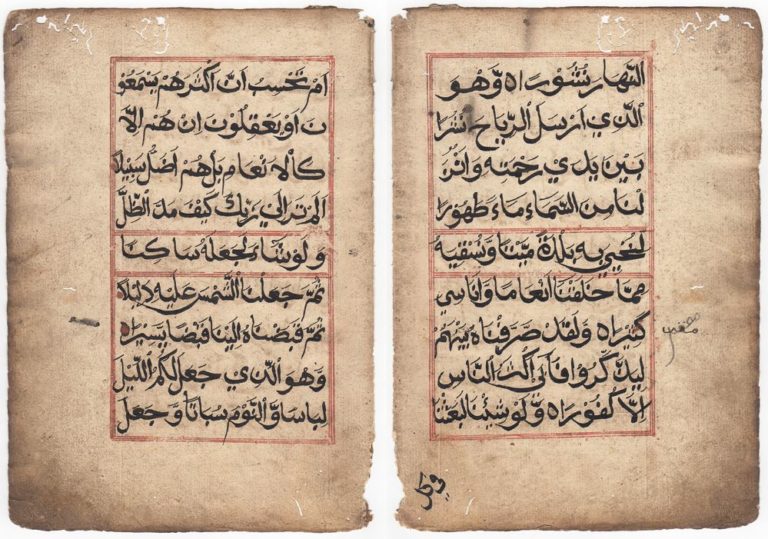 ام تحسب ان اكثرهم يسمعو
ن او يعقلون ان هم الا
كالانعام بل هم اضل سبيلا
الم تر الي ربك كيف مد الظل
ولو شاء لجعله ساكنا
ثم جعلنا الشمس عليه دليلا
ثم قبضناه الينا قبضا يسيرا ه
وهو الذي جعل لكم الليل
لباسا والنوم سباتا وجعل
النهار نشورا ه وهو
الذي ارسل الرياح نشرا
بين يدي رحمته وانز
لنا من السماء ماء طهورا
لنحيي به بلدة ميتا ونسقيه
مما خلقنا انعاما واناسي
كثيرا ه ولقد صرفناه بينهم
ليذكروا فابى اكثر الناس
الا كفورا ه ولو شئنا لبعثنا
في كل